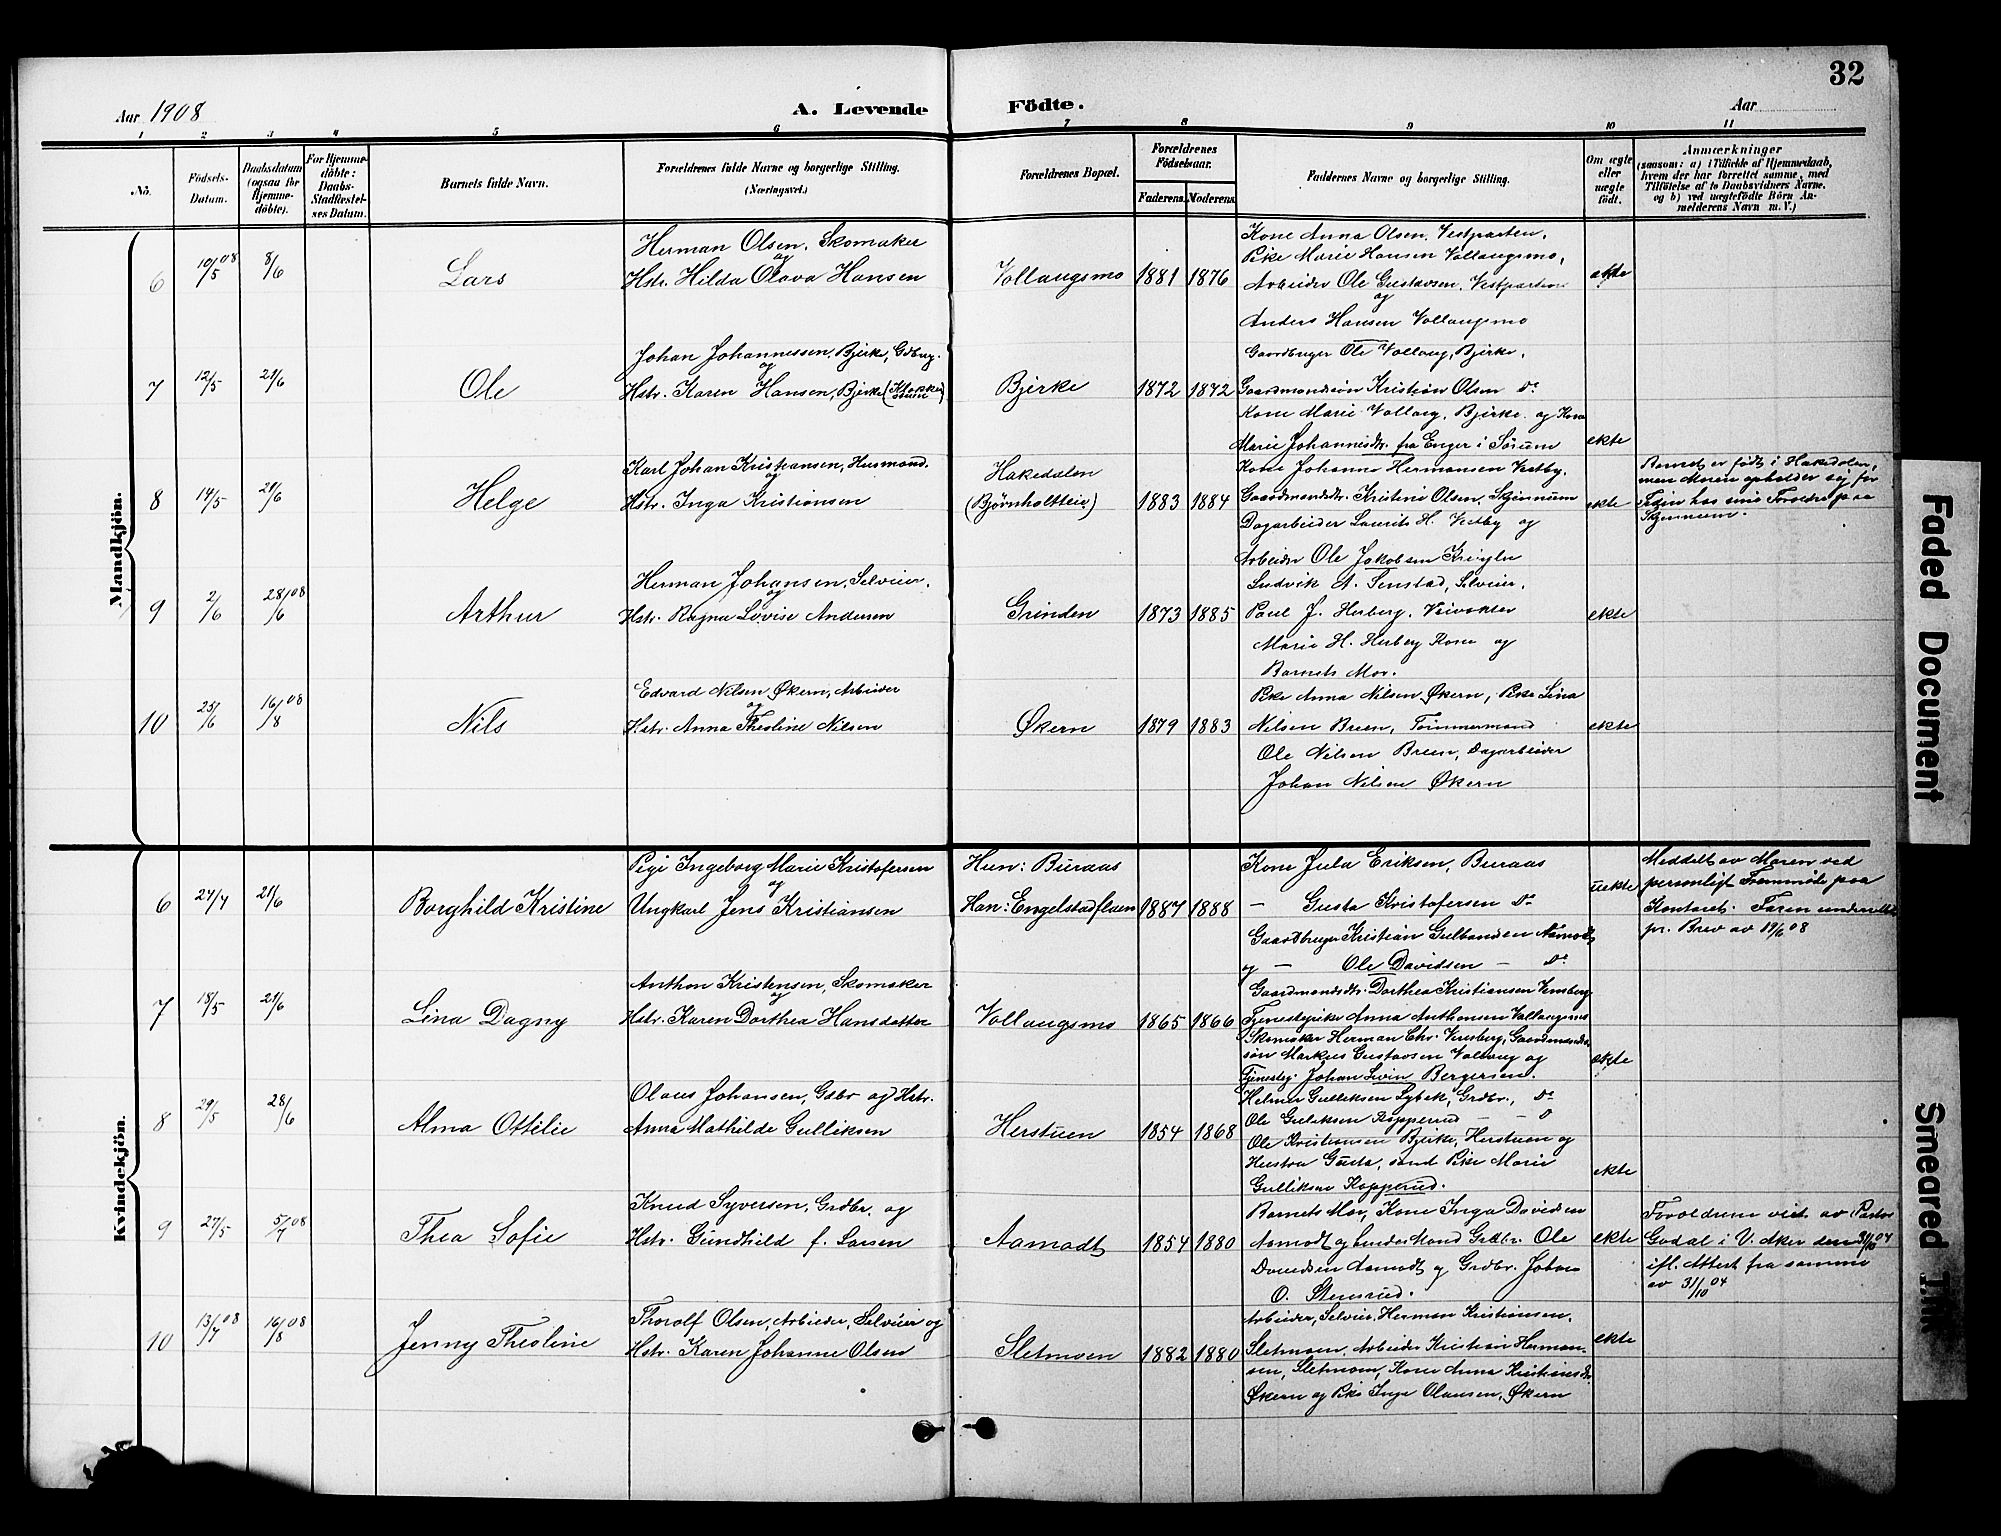 32
Aar 1908
A. Levende Födte.
Aar
1 2 3 4 5 6 7 8 9 10 11
No.
Födsels-Datum.
Daabsdatum (ogsaa for Hjemme-döbte).
For Hjemme-döbte: Daabs-Stadfæstel-ses Datum.
Barnets fulde Navn.
Forældrenes fulde Navne og borgerlige Stilling. (Næringsvei.)
Forældrenes Bopæl.
Forældrenes Födselsaar.
Faderens. Moderens.
Faddernes Navne og borgerlige Stilling.
Om ægte eller uægte födt.
Anmærkninger
(saasom: a) i Tilfælde af Hjemmedaab, hvem der har forrettet samme, med Tilföielse af to Daabsvidners Navne, og b) ved uægtefödte Börn Anmelderens Navn m. V.)
Mandkjön.
6 10/5 08 8/6 Lars
Herman Olsen, Skomaker
og
Hstr. Hilda Olava Hansen
Vollaugsmo 1881 1876
Kone Anna Olsen, Vestparten,
Pike Marie Hansen Vollaugsmo,
Arbeider Ole Gustavsen, Vestparten
og
Anders Hansen Vollaugsmo
ekte
7 12/5 21/6 Ole
Johan Johannessen, Bjerk, Gdbrug.
og
Hstr. Karen Hansen, Bjerke
Bjerke 1872 1872
Gaardbruger Ole Vollaug, Bjerke,
Gaardmandssön Kristian Olsen Do
Kone Marie Vollaug, Bjerke og Kone
Marie Johannesdtr. fra Enger i Sörum
ekte
8 14/5 21/6 Helge
Karl Johan Kristiansen, Husmand.
og
Hstr. Inga Kristiansen
Hakedalen
(Bjørnholtteie) 1883 1884
Kone Johanne Hermansen Vestby,
Gaardmandsdtr. Kristine Olsen, Skjennum
Dagarbeider Laurits H. Vestby og
Arbeider Ole Jakobsen
ekte
Barnet er født i Hakedalen,
men Moren opholder sig for
Tiden hos sine Foreldre paa
Skjennum.
9 2/6 28/6 08 Arthur
Herman Johansen, Selveier,
og
Hstr. Ragna Lovise Andersen
Grinden 1873 1885
Ludvik A. Senstad, Selveier,
Paul J. Herberg, Veivokter
Marie H. Herberg Kone og
Barnets Mor.
ekte
10 25/6 16/8 08 Nils
Edvard Nilsen Økern, Arbeider
og
Hstr. Anna Theoline Nilsen
Økern 1879 1883
Pike Anna Nilsen, Økern, Pike Lina
Nilsen Breen, Tømmermand
Ole Nilsen Breen, Dagarbeider
Johan Nilsen Økern
ekte
Kvindekjön.
6 27/4 21/6 Borghild Kristine
Pige Ingeborg Marie Kristofersen
og
Ungkarl Jens Kristiansen
Hun: Buraas
Han: Engelstadflaen 1887 1888
Kone Jula Eriksen, Buraas
— Gusta Kristofersen Do
Gaardbruger Kristian Gulbandsen Aamodt
og — Ole Davidsen — Do
uekte
Meddelt av Moren ved
personligt Fremmöte paa
Kontoret. Faren underrettet
pr. Brev av 19/6 08
7 18/5 21/6 Lina Dagny
Anthon Kristensen, Skomaker
og
Hstr. Karen Dorthea Hansdatter
Vollaugsmo 1865 1866
Gaardmandsdtr. Dorthea Kristiansen
Tjenestepike Anna Anthonsen Vollaugsmo
Skomaker Herman Chr. Gaardmands-
søn Markus Gustavsen Vollaug og
Tjenestg. Johan Bergersen.
ekte
8 29/5 28/6 Alma Ottilie
Olaus Johansen, Gdbr og Hstr.
Anna Mathilde Gulliksen
Herstuen 1854 1868
Helmer Gulliksen Lybek, Grdbr., Do
Ole Guliksen Kopperud — — D
Ole Kristiansen Bjerke, Herstuen og
Hustru Gusta, samt Pike Marie
Gulliksen Kopperud.
ekte
9 27/5 5/7 08 Thea Sofie
Knud Syversen, Grdbr. og
Hstr. Gundhild f. Larsen
Aamodt 1854 1880
Barnets Mor, Kone Inga Davidsen
Aamodt og hendes Mand Grdbr. Ole
Davidsen Aamodt og Grdbr. Johan
O. Stensrud.
ekte
Foreldrene viet av Pastor
Godal i V. Aker den 31/10 04
ifl. Attest fra samme
av 31/10 04
10 13/7 08 16/8 08 Jenny Theoline
Thorolf Olsen, Arbieder, Selveier og
Hstr. Karen Johanne Olsen
Sletmoen 1882 1880
Arbeider, Selveier Herman Kristiansen,
Sletmoen, Arbeider Kristian Herman-
sen, Sletmoen, Kone Anna Kristiansdtr.
Økern og Pike Inga Olausen, Økern
ekte
Faded Document
Smeared Ink